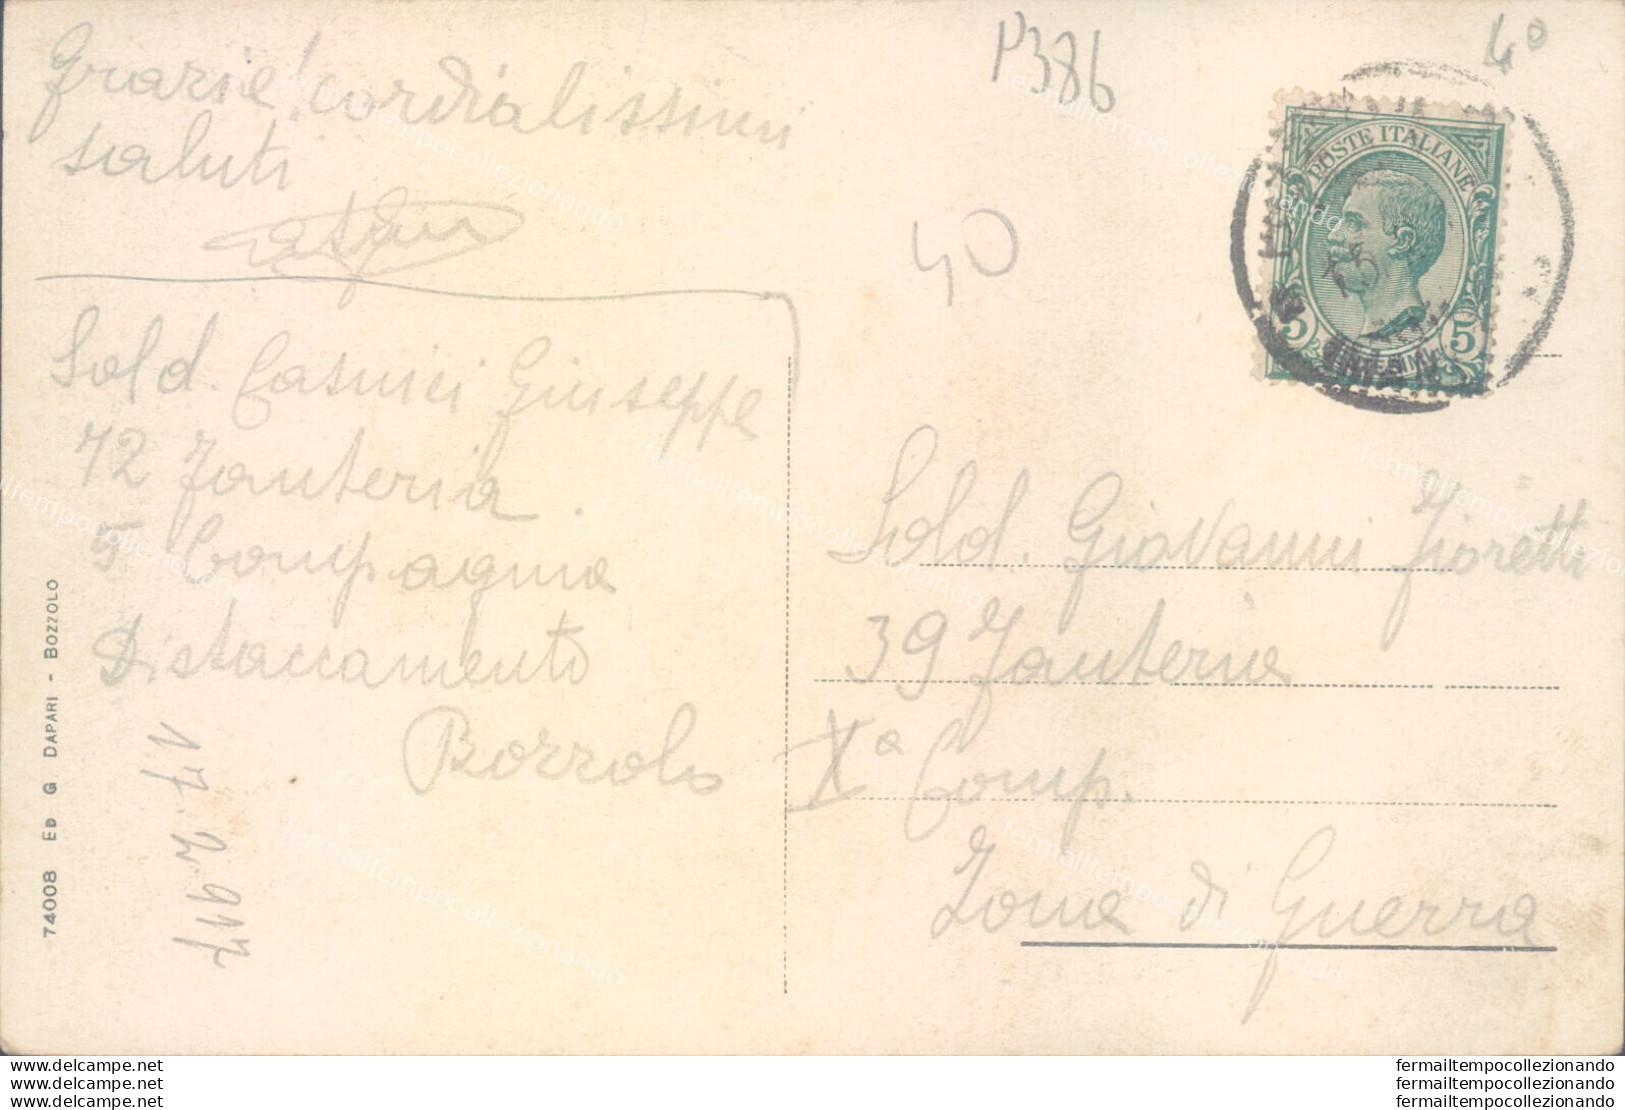 Grazie! cordialissimi
saluti
Sold. Casnici Giuseppe
72 Fanteria.
5 Compagnia
Distaccamento
Bozzolo
17.2.917
74008 ED G. DAPARI - BOZZOLO
P386
40
40
POSTE ITALIANE
5 5
Sold. Giovanni Fioretti
39 Fanteria
Xª Comp.
Zona di Guerra
www.delcampe.net
www.delcampe.net
www.delcampe.net
fermailtempocollezionando
fermailtempocollezionando
fermailtempocollezionando